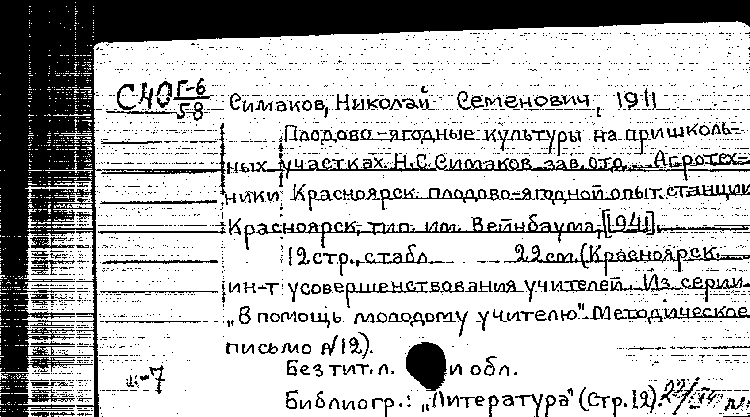 С40 Г-6/58 Симаков, Николай Семенович, 1911
Плодово-ягодные культуры на пришколь-
ных участках. Н.С. Симаков зав. отд. Агротех-
ники Красноярск. плодово-ягодной опыт. станции
Красноярск, тип. им. Вейнбаума, [1941].
12 стр., с табл. 22 см. (Красноярск.
ин-т усовершенствования учителей. Из серии
„В помощь молодому учителю". Методическое
письмо №12).
Без тит. л. и обл.
Библиогр.: „Литература" (Стр. 12)